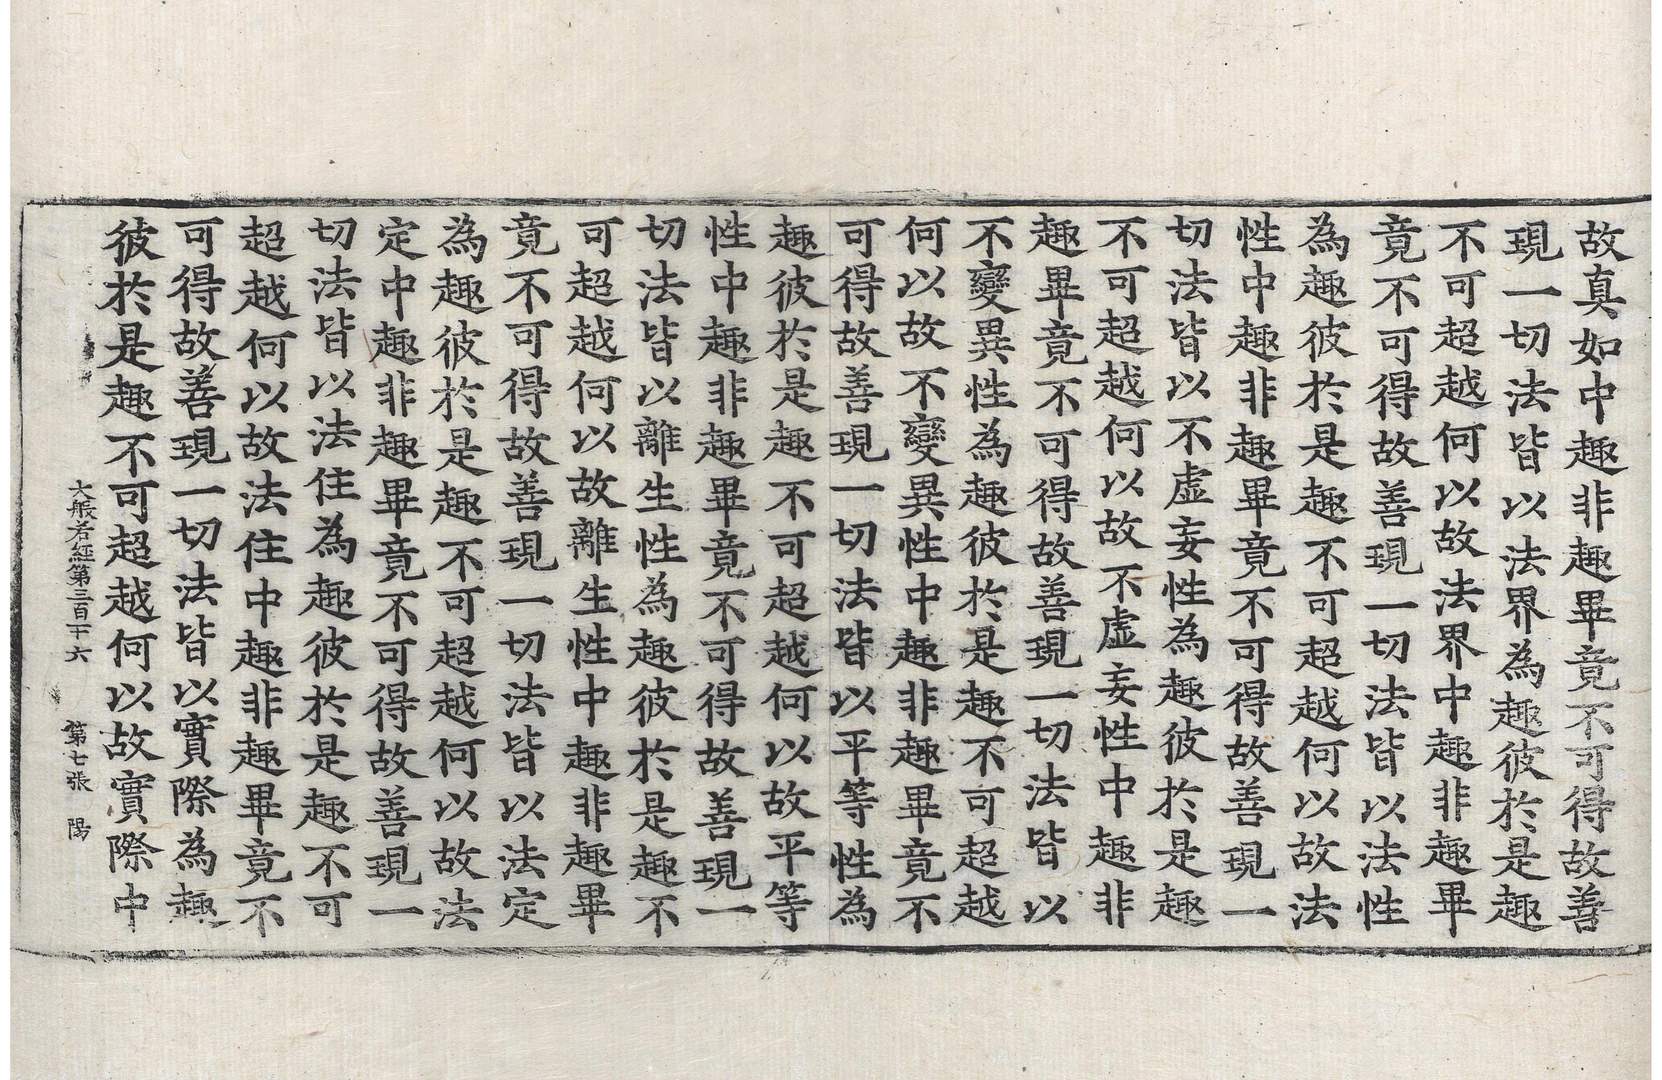 故真如中趣非趣畢竟不可得故善
現一切法皆以法界為趣彼於是趣
不可超越何以故法界中趣非趣畢
竟不可得故善現一切法皆以法性
為趣彼於是趣不可超越何以故法
性中趣非趣畢竟不可得故善現一
切法皆以不虛妄性為趣彼於是趣
不可超越何以故不虛妄性中趣非
趣畢竟不可得故善現一切法皆以
不變異性為趣彼於是趣不可超越
何以故不變異性中趣非趣畢竟不
可得故善現一切法皆以平等性為
趣彼於是趣不可超越何以故平等
性中趣非趣畢竟不可得故善現一
切法皆以離生性為趣彼於是趣不
可超越何以故離生性中趣非趣畢
竟不可得故善現一切法皆以法定
為趣彼於是趣不可超越何以故法
定中趣非趣畢竟不可得故善現一
切法皆以法住為趣彼於是趣不可
超越何以故法住中趣非趣畢竟不
可得故善現一切法皆以實際為趣
彼於是趣不可超越何以故實際中
大般若經第三百二十六 第七張 陽